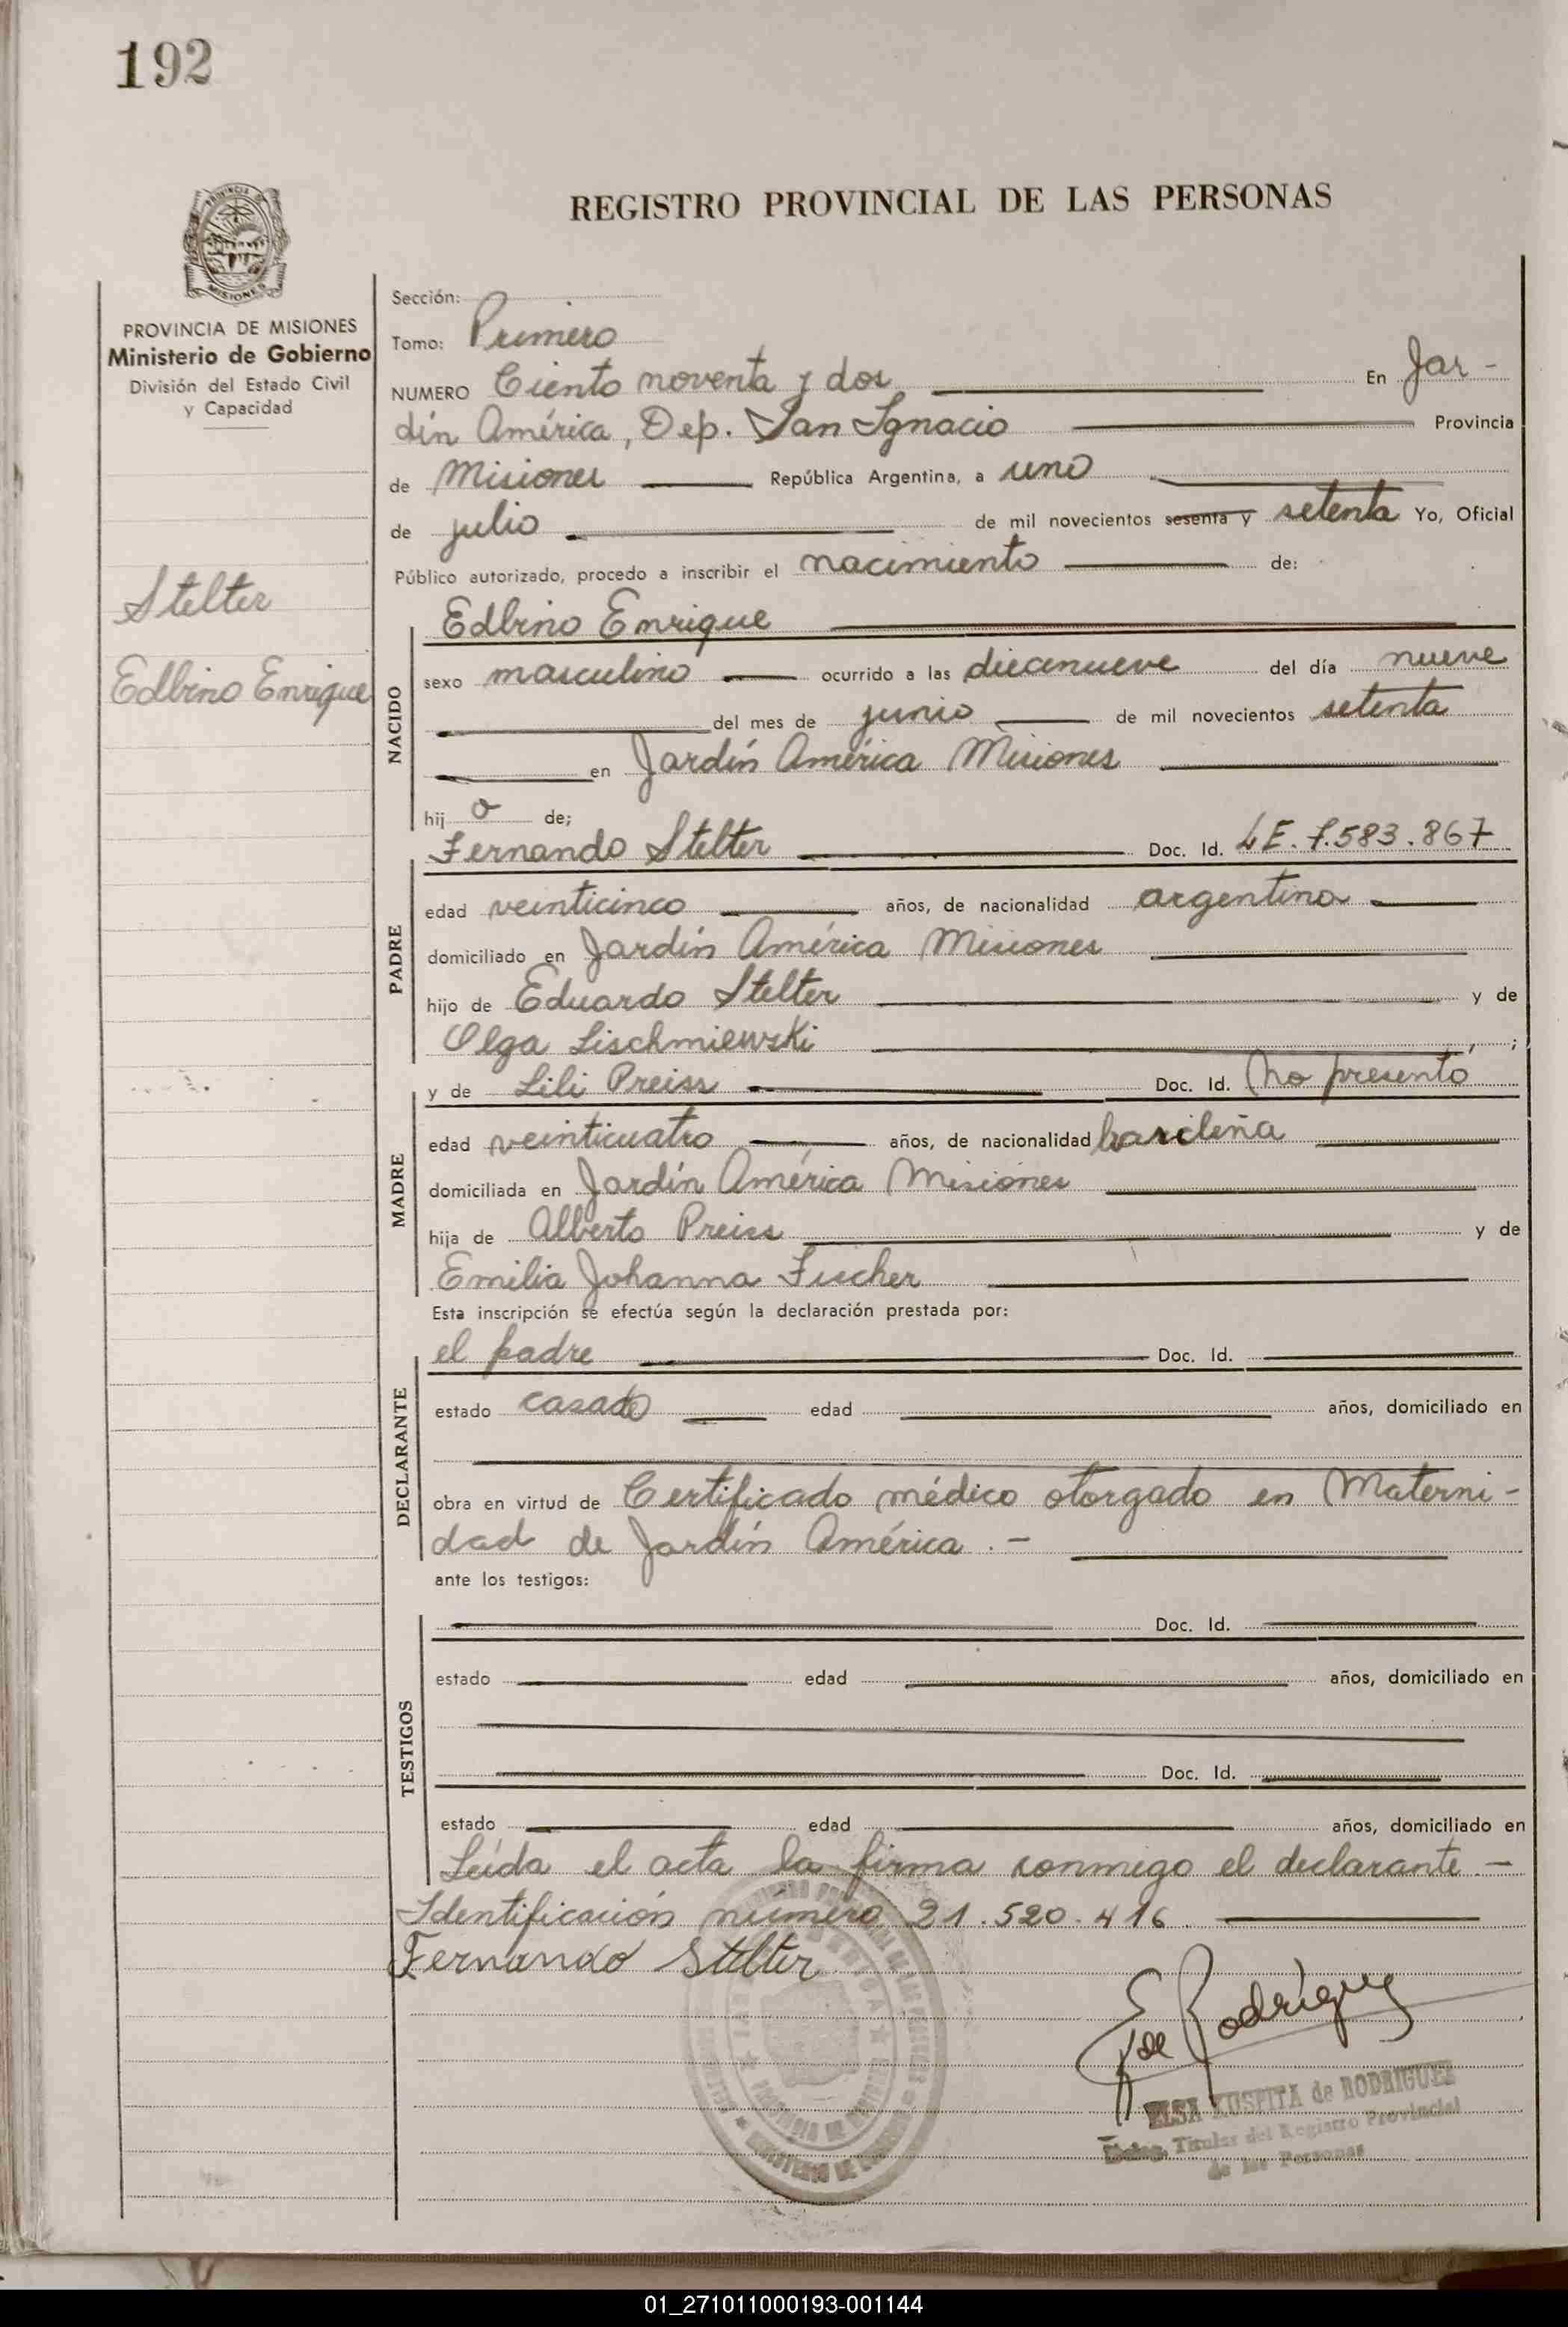 192
REGISTRO PROVINCIAL DE LAS PERSONAS
PROVINCIA DE MISIONES
Ministerio de Gobierno
División del Estado Civil
y Capacidad
Stelter
Edbino Enrique
Sección:
Tomo: Primero
NUMERO Ciento noventa y dos En Jar-
dín América, Dep. San Ignacio Provincia
de Misiones República Argentina, a uno
de julio de mil novecientos sesenta y setenta Yo, Oficial
Público autorizado, procedo a inscribir el nacimiento de:
Edbino Enrique
NACIDO
sexo masculino ocurrido a las diecinueve del día nueve
del mes de junio de mil novecientos setenta
en Jardín América Misiones
hij o de;
Fernando Stelter Doc. Id. LE. 7.583.867
PADRE
edad veinticinco años, de nacionalidad argentina
domiciliado en Jardín América Misiones
hijo de Eduardo Stelter y de
Olga Lischmiewski ;
y de Lili Preiss Doc. Id. No presentó
MADRE
edad veinticuatro años, de nacionalidad
domiciliada en Jardín América Misiones
hija de Alberto Preiss y de
Emilia Johanna Fischer
Esta inscripción se efectúa según la declaración prestada por:
el padre Doc. Id.
DECLARANTE
estado casado edad años, domiciliado en
obra en virtud de Certificado médico otorgado en Materni-
dad de Jardín América.-
ante los testigos:
Doc. Id.
TESTIGOS
estado edad años, domiciliado en
Doc. Id.
estado edad años, domiciliado en
Leída el acta la firma conmigo el declarante -
Identificación número 21.520.416.
Fernando Stelter
E K de Rodríguez
ELSA KUSPITA de RODRIGUEZ
Deleg. Titular del Registro Provincial
de las Personas
01_271011000193-001144